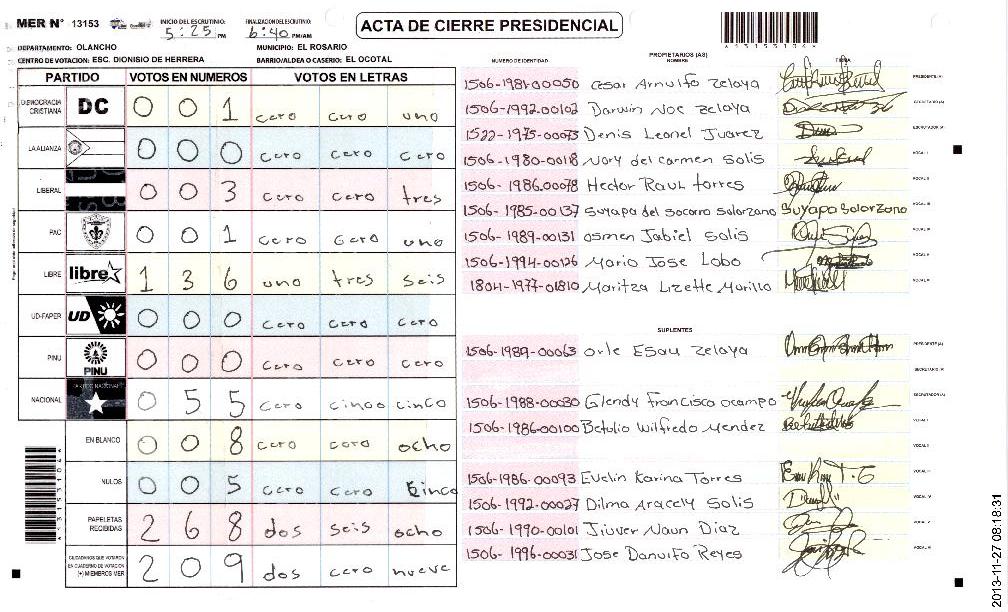 MER N° 13153
INICIO DEL ESCRUTINIO:
5:25 PM
FINALIZACION DEL ESCRUTINIO:
6:40 PM/AM
ACTA DE CIERRE PRESIDENCIAL
DEPARTAMENTO: OLANCHO
MUNICIPIO: EL ROSARIO
CENTRO DE VOTACION: ESC. DIONISIO DE HERRERA
BARRIO/ALDEA O CASERIO: EL OCOTAL
PARTIDO VOTOS EN NUMEROS VOTOS EN LETRAS
DEMOCRACIA CRISTIANA DC 0 0 1 cero cero uno
LA ALIANZA 0 0 0 cero cero cero
LIBERAL 0 0 3 cero cero tres
PAC 0 0 1 cero cero uno
LIBRE libre 1 3 6 uno tres seis
UD-FAPER UD 0 0 0 cero cero cero
PINU PINU 0 0 0 cero cero cero
NACIONAL PARTIDO NACIONAL 0 5 5 cero cinco cinco
EN BLANCO 0 0 8 cero cero ocho
NULOS 0 0 5 cero cero cinco
PAPELETAS RECIBIDAS 2 6 8 dos seis ocho
CIUDADANOS QUE VOTARON EN CUADERNO DE VOTACION (+) MIEMBROS MER 2 0 9 dos cero nueve
PROPIETARIOS (AS)
NUMERO DE IDENTIDAD NOMBRE FIRMA
1506-1981-00050 Cesar Arnulfo Zelaya PRESIDENTE (A)
1506-1992-00102 Darwin Noe Zelaya SECRETARIO (A)
1522-1975-00073 Denis Leonel Juarez ESCRUTADOR (A)
1506-1980-00118 Nory del carmen Solis VOCAL I
1506-1986-00078 Hector Raul torres VOCAL II
1506-1985-00137 Suyapa del socorro solorzano Suyapa Solorzano VOCAL III
1506-1989-00131 osmen Jabiel Solis VOCAL IV
1506-1994-00126 Mario Jose Lobo VOCAL V
1804-1977-01810 Maritza Lizette Murillo VOCAL VI
SUPLENTES
1506-1989-00063 Orle Esau Zelaya PRESIDENTE (A)
SECRETARIO (A)
1506-1988-00030 Glendy Francisco ocampo ESCRUTADOR (A)
1506-1986-00100 Betulio Wilfredo Mendez VOCAL I
VOCAL II
1506-1986-00093 Evelin Karina Torres VOCAL III
1506-1992-00027 Dilma Aracely Solis VOCAL IV
1506-1990-00101 Jiuver Naun Diaz VOCAL V
1506-1996-00031 Jose Danulfo Reyes VOCAL VI
2013-11-27 08:18:31